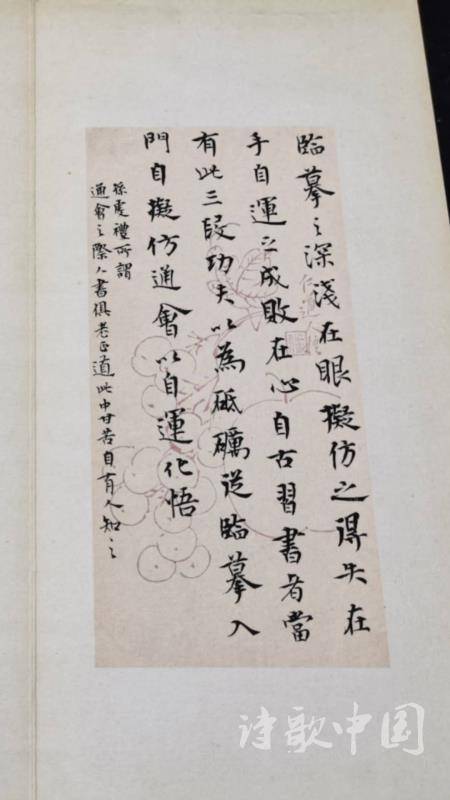 臨摹之深淺在眼擬仿之得失在
手自運之成敗在心自古習書者當
有此三段功夫以為砥礪從臨摹入
門自擬仿通會以自運化悟
孫虔禮所謂
通會之際人書俱老正道此中甘苦自有人知之
诗歌中国